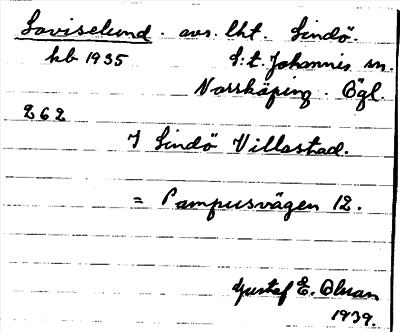 Loviselund. avs. lht. Lindö.
kb 1935 S:t. Johannis sn.
Norrköping. Ögl.
262
I Lindö Villastad.
= Pampusvägen 12.
Gustaf E. Olsson
1939.